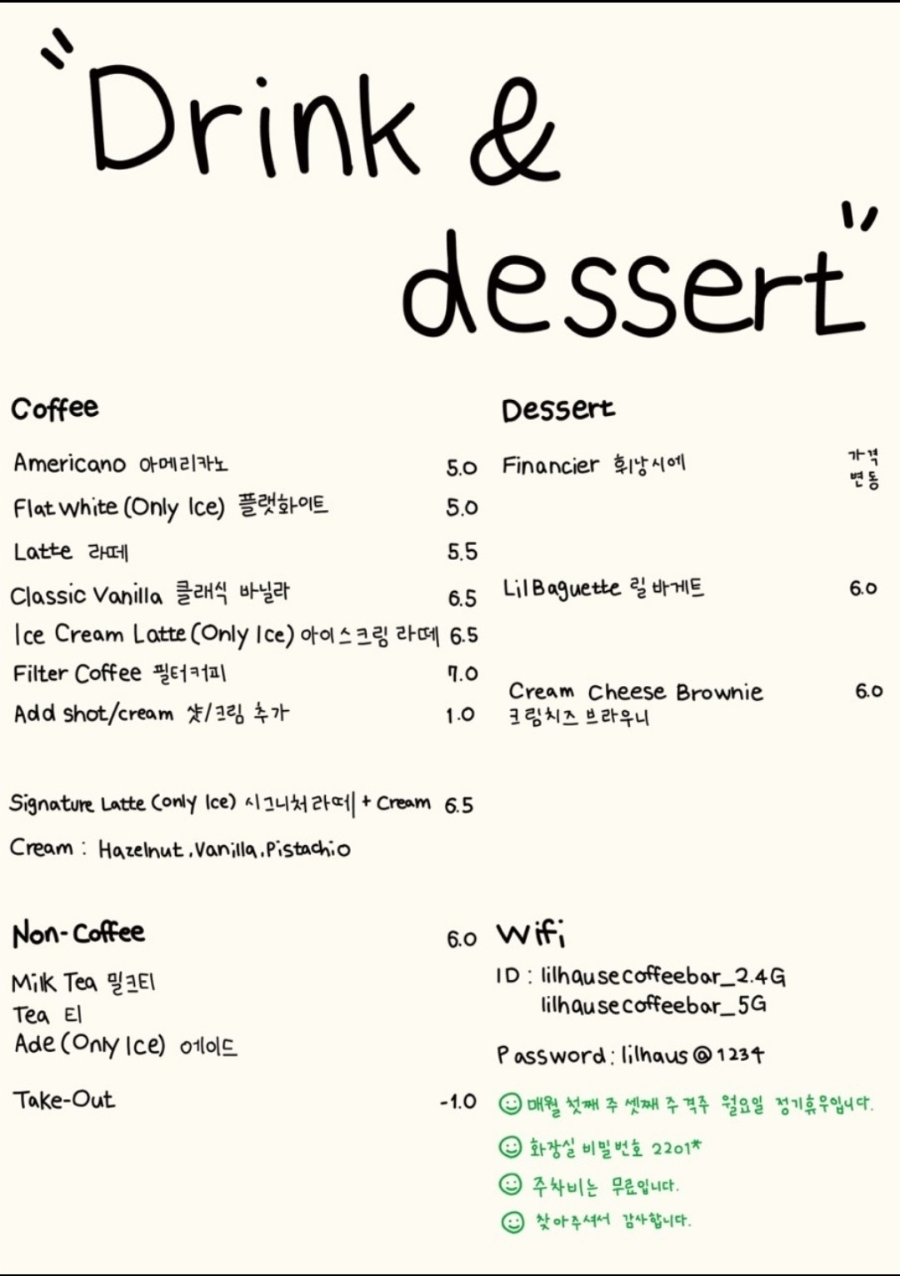 "Drink &
dessert"
Coffee
Americano 아메리카노 5.0
Flat white (Only Ice) 플랫화이트 5.0
Latte 라떼 5.5
Classic Vanilla 클래식 바닐라 6.5
Ice Cream Latte (Only Ice) 아이스크림 라떼 6.5
Filter Coffee 필터커피 7.0
Add shot/cream 샷/크림 추가 1.0
Signature Latte (only Ice) 시그니처 라떼 + Cream 6.5
Cream : Hazelnut, Vanilla, Pistachio
Non-Coffee 6.0
Milk Tea 밀크티
Tea 티
Ade (Only Ice) 에이드
Take-Out -1.0
Dessert
Financier 휘낭시에 가격
변동
Lil Baguette 릴 바게트 6.0
Cream Cheese Brownie 6.0
크림치즈 브라우니
Wifi
ID : lilhausecoffeebar_2.4G
lilhausecoffeebar_5G
Password : lilhaus@1234
매월 첫째 주 셋째 주 격주 월요일 정기휴무입니다.
화장실 비밀번호 2201*
주차비는 무료입니다.
찾아주셔서 감사합니다.